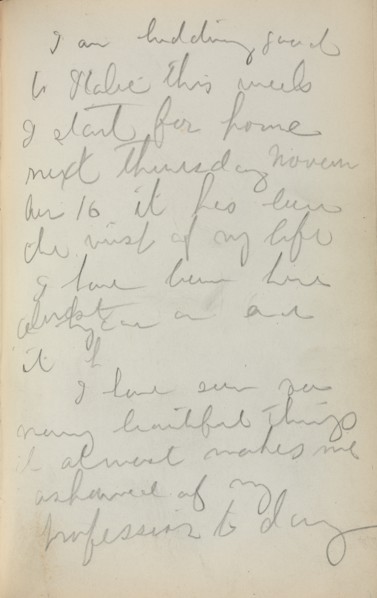 I am bidding good
to Italie this week
I start for home
next Thursday Novem
ber 16 it has been
the visit of my life
I have been here
almost year an and
it
I have seen so
many beautiful things
it almost makes me
ashamed of my
profession to day